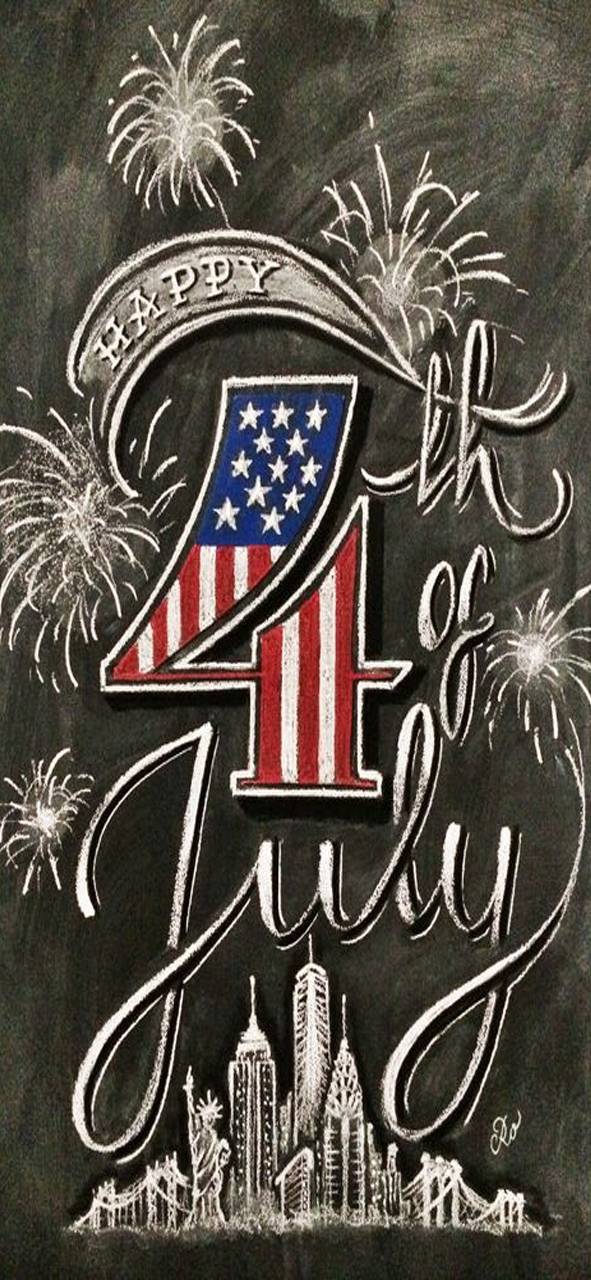 HAPPY
4th
of
July